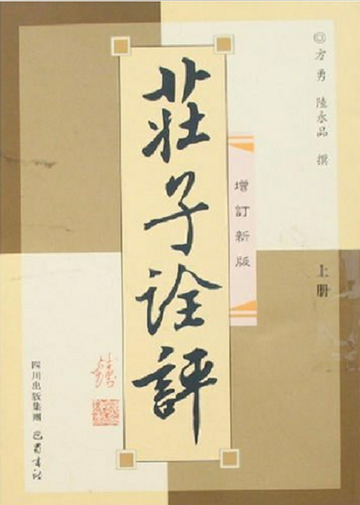 ◎方勇 陸永品 撰
莊子詮評
增訂新版
上册
四川出版集團 巴蜀書社